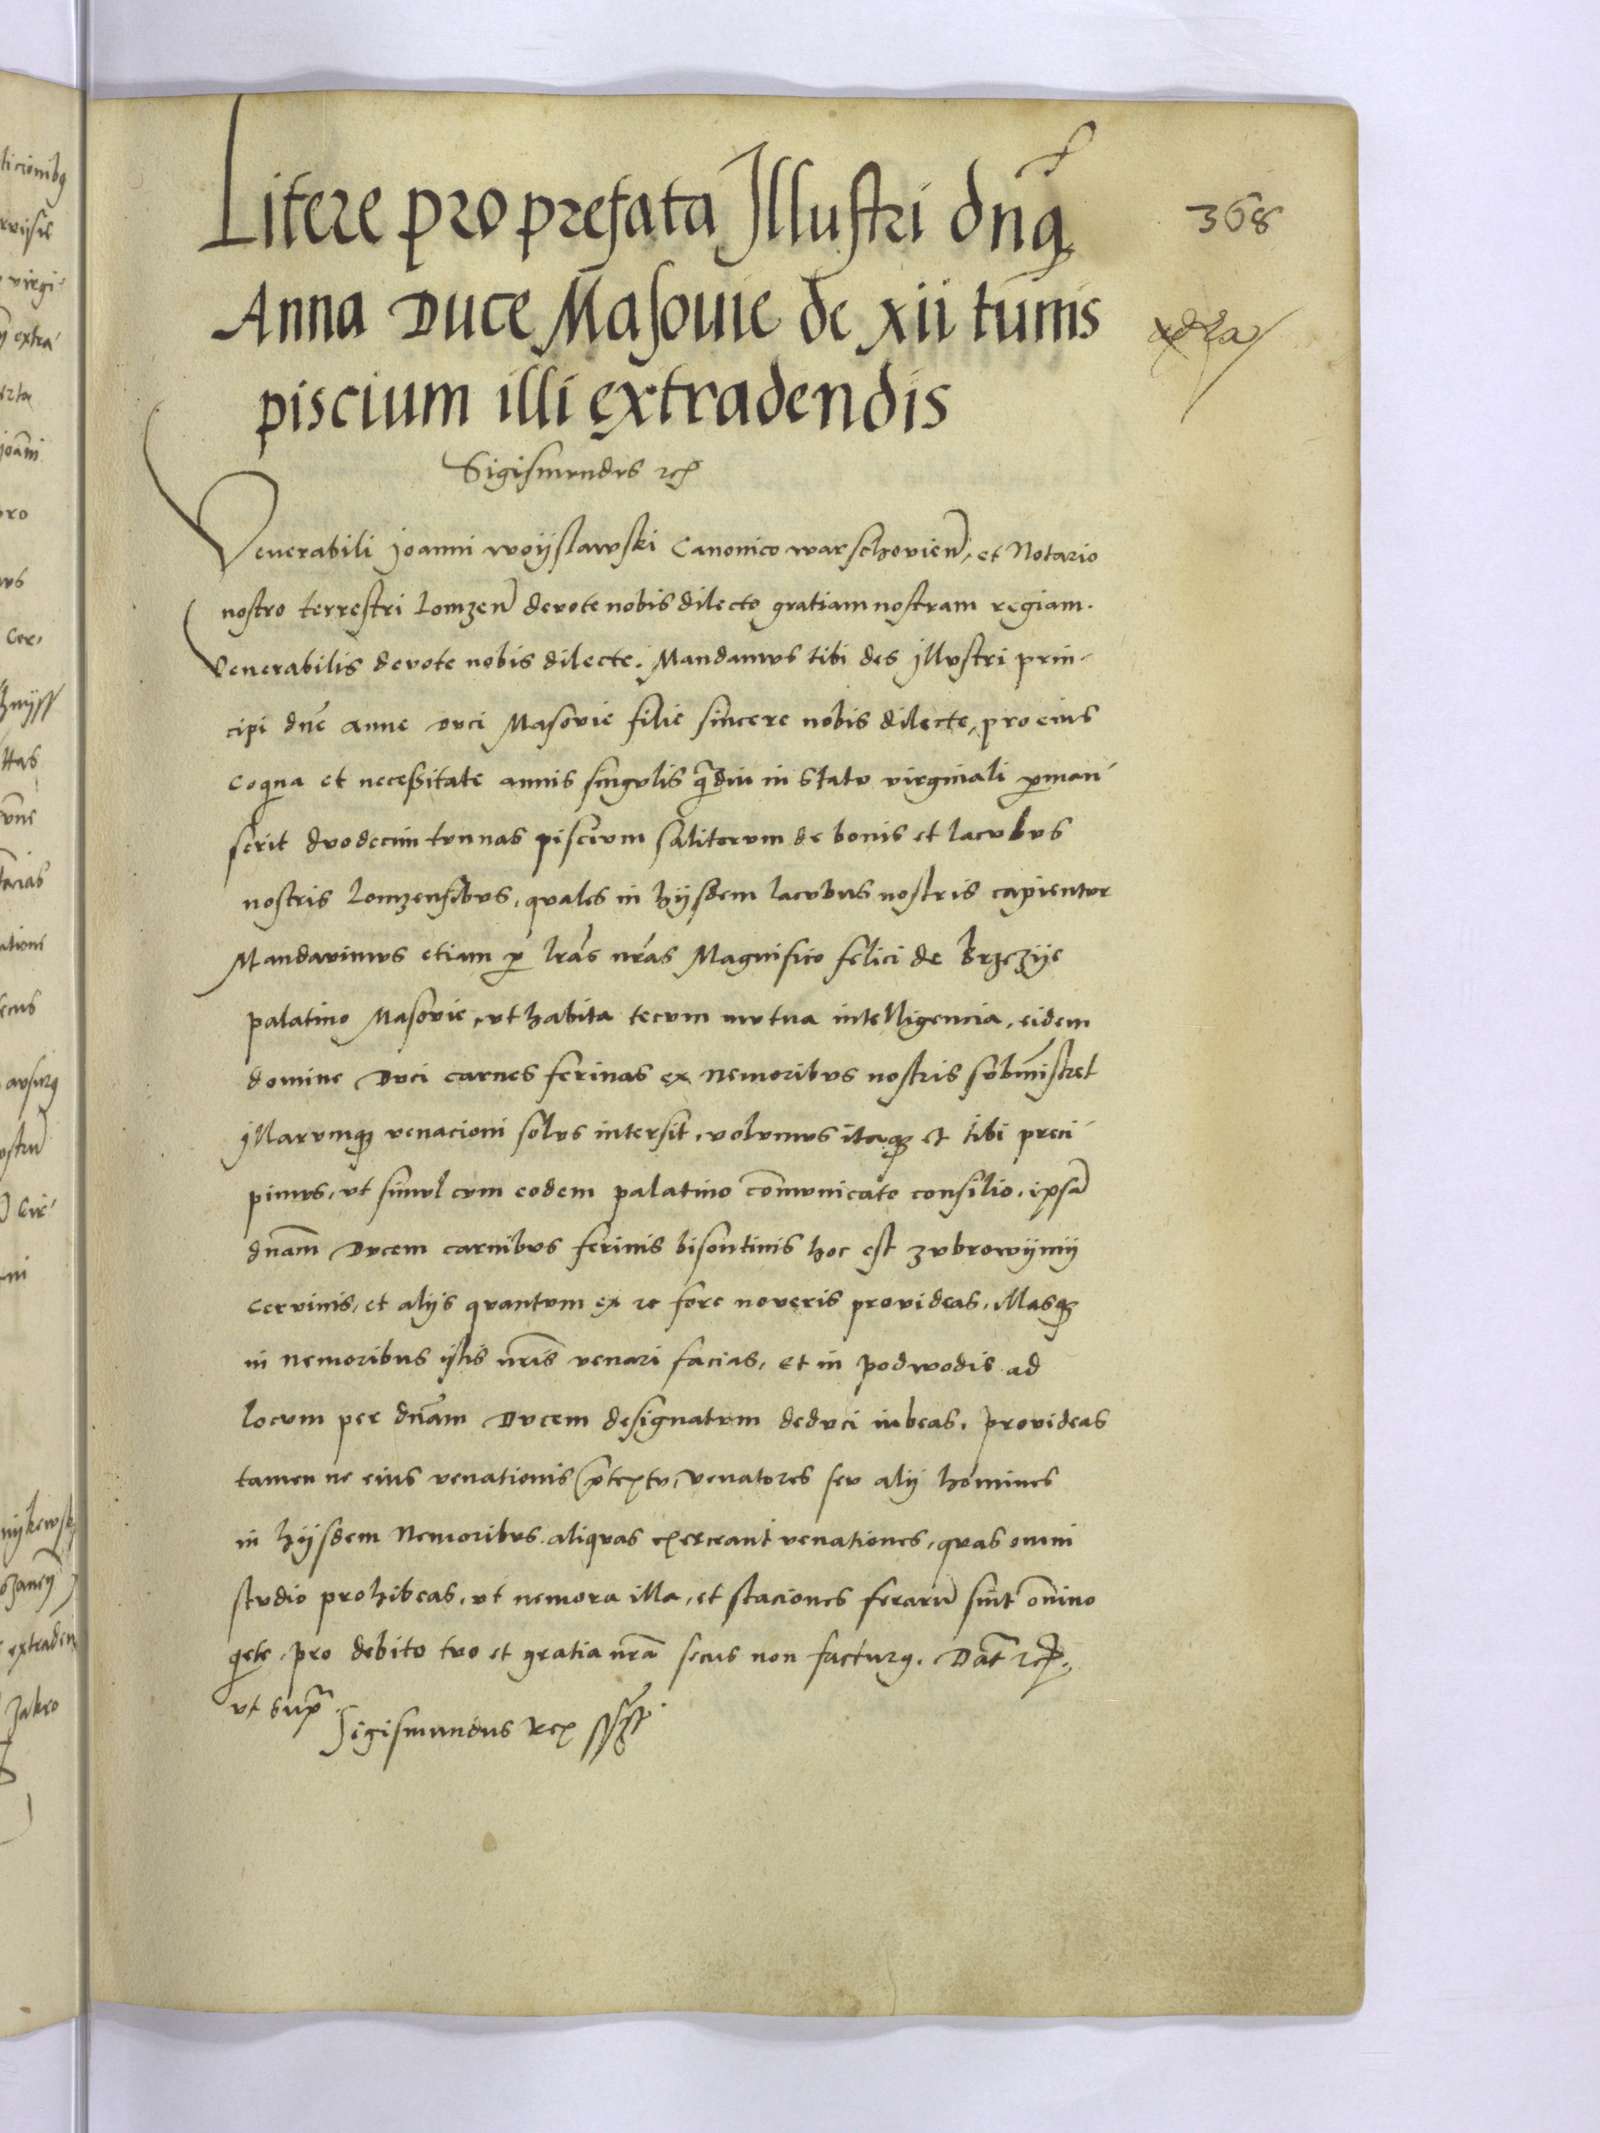 368
Litere pro prefata Illustri dnā
Anna Duce Masouie de xii tunis
piscium illi extradendis
Sigismundus rex
Venerabili Joanni woijslawski Canonico warschovien, et Notario
nostro terrestri Lomzen devote nobis dilecto gratiam nostram regiam.
Venerabilis devote nobis dilecte. Mandamvs tibi des Jllvstri prin-
cipi dne Anne dvci Masovie filie sincere nobis dilecte, pro eivs
coqna et necessitate annis singvlis qdiu in statv virginali pman-
serit dvodecim tvnnas piscivm salitorvm de bonis et lacvbvs
nostris Lomzensibvs, qvales in hijsdem lacvbus nostris capientvr
Mandavimvs etiam p lras nras Magnifico felici de Brzezije
palatino Masovie, vt habita tecvm mvtua intelligencia, eidem
domine Dvci carnes ferinas ex Nemoribvs nostris svbmistret
Jllarvmq venacioni solvs intersit, volvmvs itaq et tibi preci-
pimvs, vt simvl cvm eodem palatino comvnicato consilio, ipsa
dnam Dvcem carnibvs ferinis bisontinis hoc est zvbrowijmij
cervinis, et alijs qvantvm ex re fore noveris provideas, Illasq
in Nemoribus istis nris venari facias, et in podwodis ad
locvm per dnam Dvcem designatvm dedvci iubeas, provideas
tamen ne eius venationis ptextv, venatores sev alij homines
in hijsdem Nemoribvs aliqvas exerceant venationes, qvas omni
stvdio prohibeas, vt nemora illa, et staciones ferarv sint omnino
qete, pro debito tvo et gratia nra secus non facturq. Dat
vt supra
Sigismundus Rex